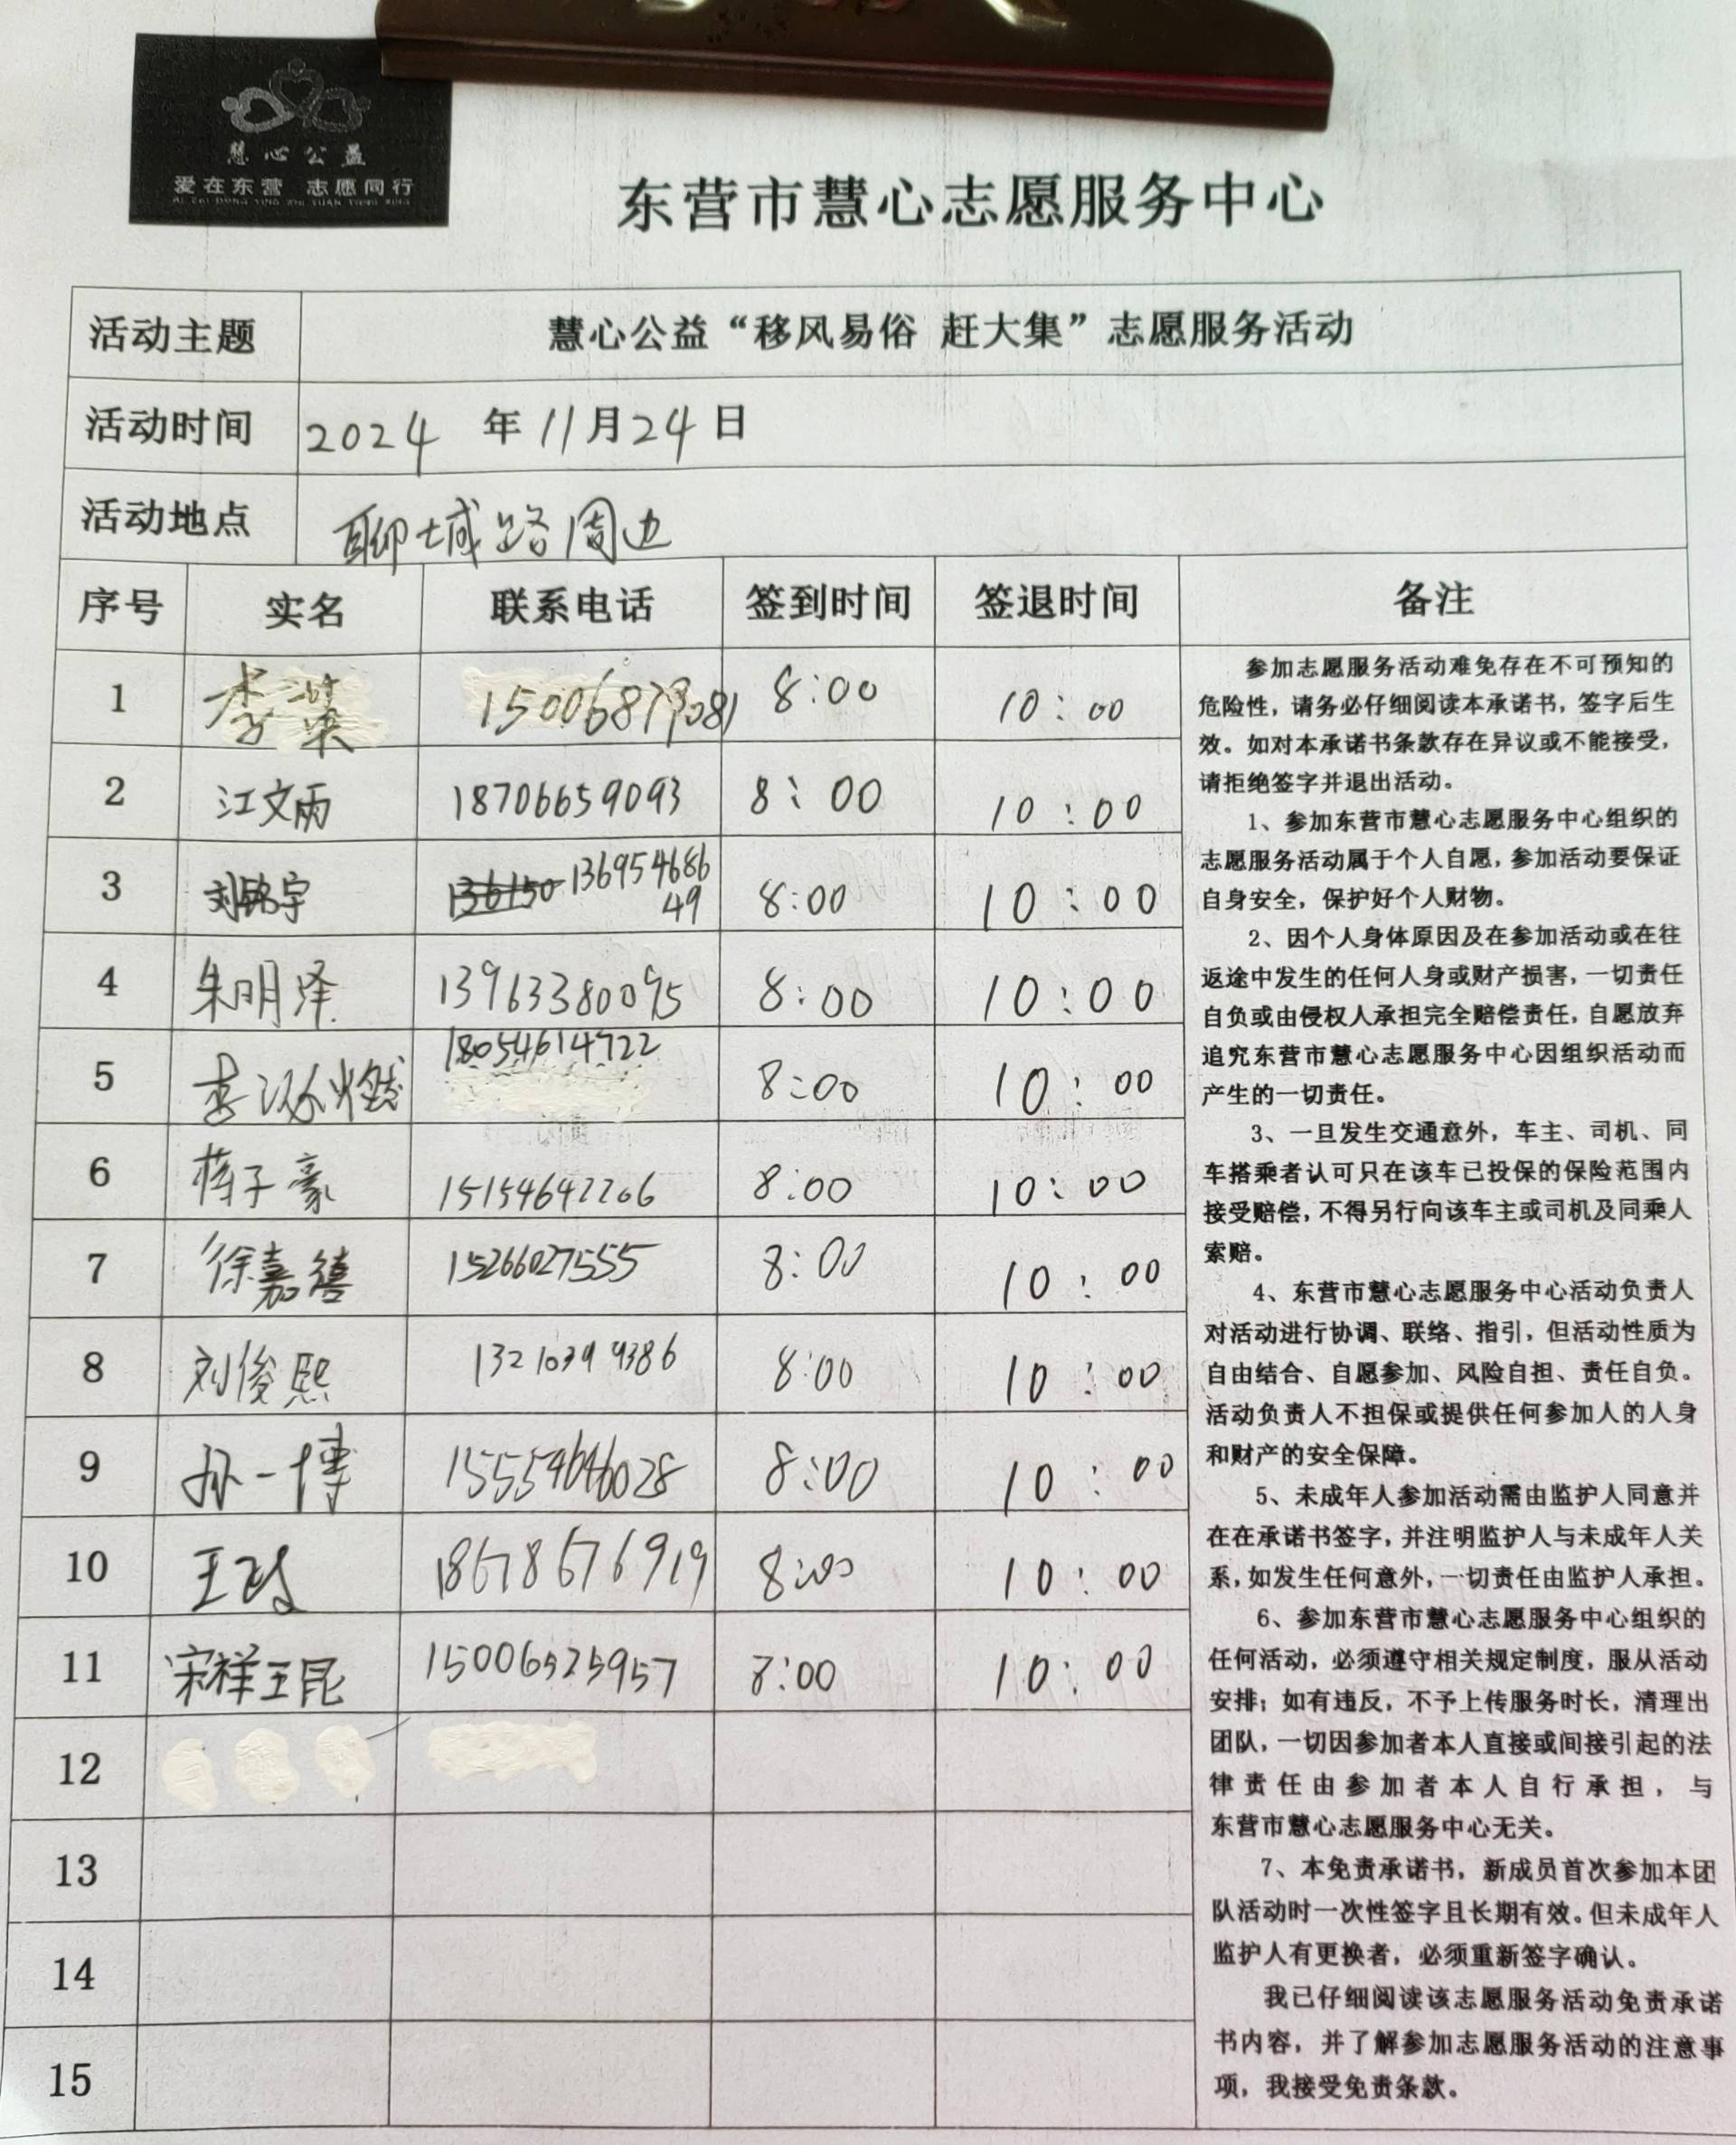 慧心公益
爱在东营 志愿同行
AI ZAI DONG YING ZHI YUAN TONG XING
东营市慧心志愿服务中心
活动主题 慧心公益“移风易俗 赶大集”志愿服务活动
活动时间 2024 年 11月24日
活动地点 聊城路周边
序号 实名 联系电话 签到时间 签退时间 备注
1 李 8:00 10:00
2 江文雨 18706659093 8:00 10:00
3 刘铭宇 13695468649 8:00 10:00
4 朱明泽 13963380095 8:00 10:00
5 李 燃 18054614722 8:00 10:00
6 蒋子豪 15154642206 8:00 10:00
7 徐嘉禧 15266027555 8:00 10:00
8 刘俊熙 8:00 10:00
9 孙一博 15554646028 8:00 10:00
10 王政 18678676919 8:00 10:00
11 宋祥玉昆 15006525957 8:00 10:00
12
13
14
15
参加志愿服务活动难免存在不可预知的
危险性，请务必仔细阅读本承诺书，签字后生
效。如对本承诺书条款存在异议或不能接受，
请拒绝签字并退出活动。
1、参加东营市慧心志愿服务中心组织的
志愿服务活动属于个人自愿，参加活动要保证
自身安全，保护好个人财物。
2、因个人身体原因及在参加活动或在往
返途中发生的任何人身或财产损害，一切责任
自负或由侵权人承担完全赔偿责任，自愿放弃
追究东营市慧心志愿服务中心因组织活动而
产生的一切责任。
3、一旦发生交通意外，车主、司机、同
车搭乘者认可只在该车已投保的保险范围内
接受赔偿，不得另行向该车主或司机及同乘人
索赔。
4、东营市慧心志愿服务中心活动负责人
对活动进行协调、联络、指引，但活动性质为
自由结合、自愿参加、风险自担、责任自负。
活动负责人不担保或提供任何参加人的人身
和财产的安全保障。
5、未成年人参加活动需由监护人同意并
在在承诺书签字，并注明监护人与未成年人关
系，如发生任何意外，一切责任由监护人承担。
6、参加东营市慧心志愿服务中心组织的
任何活动，必须遵守相关规定制度，服从活动
安排；如有违反，不予上传服务时长，清理出
团队，一切因参加者本人直接或间接引起的法
律责任由参加者本人自行承担，与
东营市慧心志愿服务中心无关。
7、本免责承诺书，新成员首次参加本团
队活动时一次性签字且长期有效。但未成年人
监护人有更换者，必须重新签字确认。
我已仔细阅读该志愿服务活动免责承诺
书内容，并了解参加志愿服务活动的注意事
项，我接受免责条款。